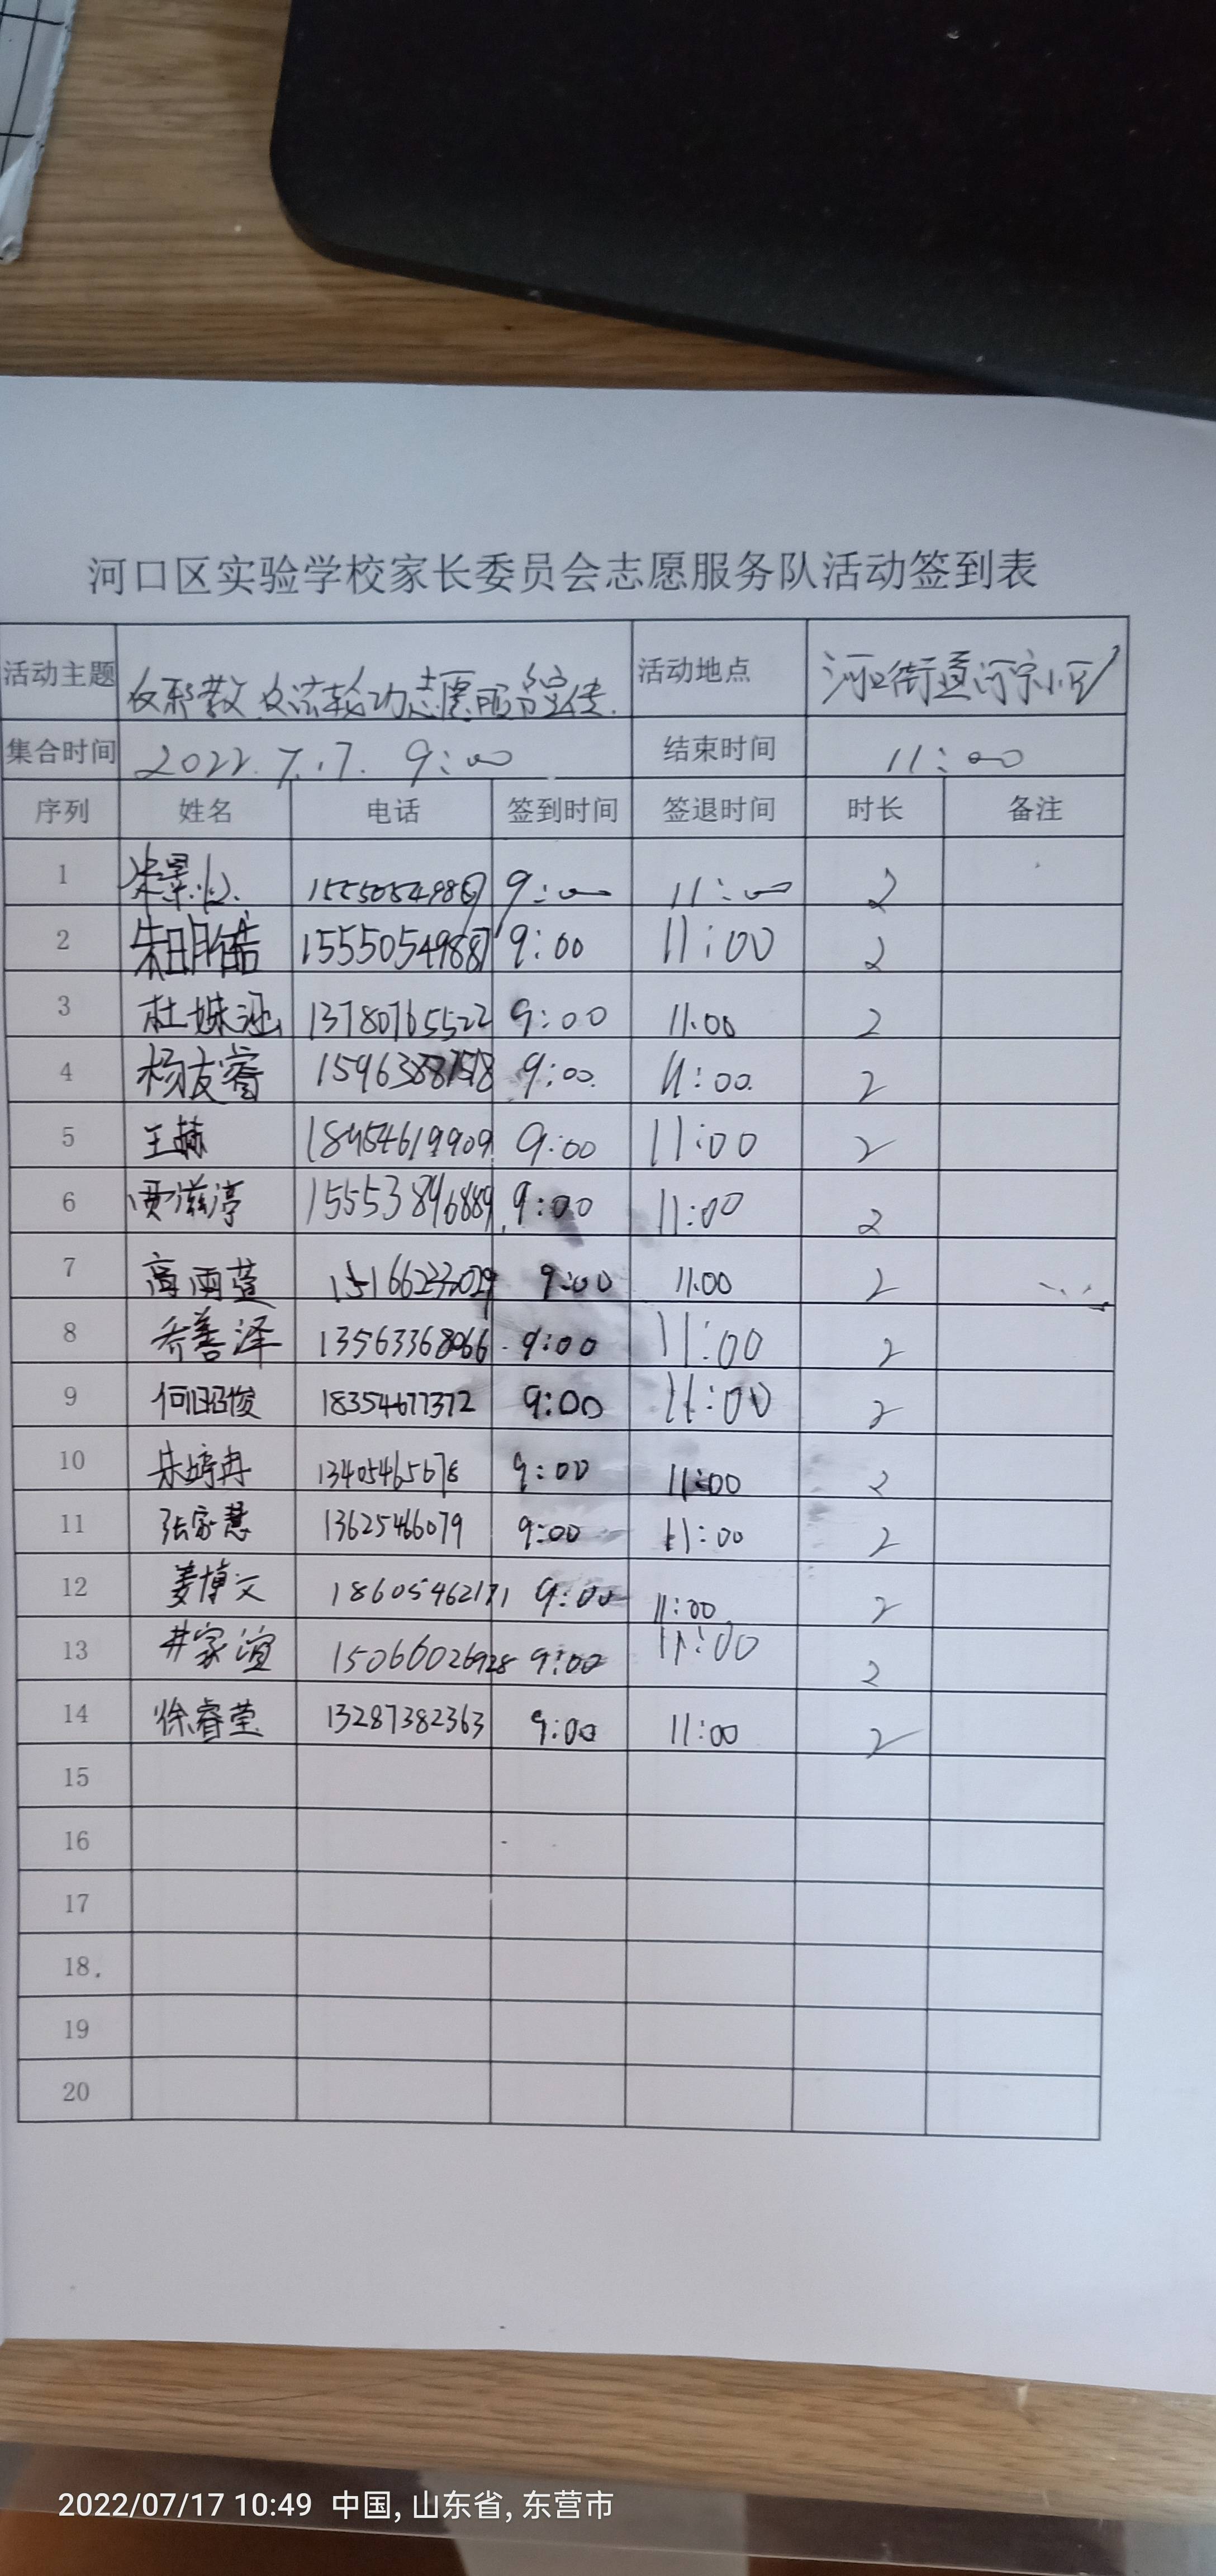 河口区实验学校家长委员会志愿服务队活动签到表
活动主题 反邪教 反法轮功志愿服务宣传 活动地点 河口街道河宗小区
集合时间 2022.7.17. 9:00 结束时间 11:00
序列 姓名 电话 签到时间 签退时间 时长 备注
1 朱景 9:00 11:00 2
2 朱明皓 15550549887 9:00 11:00 2
3 杜姝涵 13780765522 9:00 11:00 2
4 杨友睿 9:00. 11:00. 2
5 王赫 18454619909 9:00 11:00 2
6 贾滋淳 15553896889 9:00 11:00 2
7 高雨萱 15166233029 9:00 11:00 2
8 乔善泽 13563368066 9:00 11:00 2
9 何昭俊 18354677372 9:00 11:00 2
10 朱婷冉 13405465678 9:00 11:00 2
11 张家慧 13625466079 9:00 11:00 2
12 姜博文 18605462171 9:00 11:00 2
13 井家谊 15066026928 9:00 11:00 2
14 徐睿莹 13287382363 9:00 11:00 2
15
16
17
18
19
20
2022/07/17 10:49 中国, 山东省, 东营市